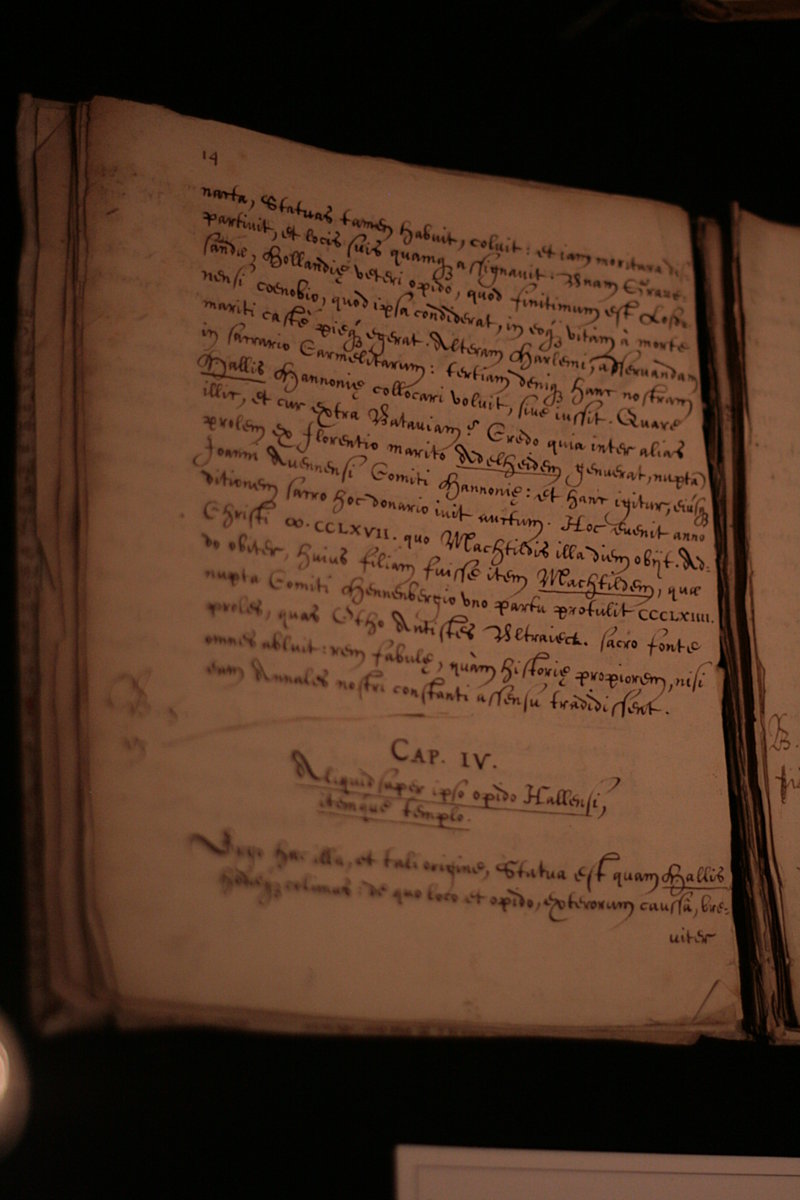 14
narta, Statuas tamen habuit, coluit: et iam moritura dis-
partiuit, et locis suis quamq; assignauit. Vnam Graue-
sandæ, Hollandię veteri opido, quod finitimum est Losdu-
nensi coenobio, quod ipsa condiderat, in eoq; vitam à morte
mariti castè pieq; egerat. Alteram Harlemi, adseruandam
in sacrario Carmelitarum: tertiam deniq; hanc nostram
Hallis Hannonię collocari voluit, siue iussit. Quare
illic, et cur extra Batauiam? Credo quia inter alias
prolem ex Florentio marito Adelheidem genuerat, nupta
Joanni Auennensi Comiti Hannonię: et hanc igitur, eiusq;
ditionem sacro hoc donario iuit auctum. Hoc euenit anno
Christi ∞.CCLXVII. quo Machtildis illa diem obijt. Ad-
do obiter, huius filiam fuisse item Machtildem, quæ
nupta Comiti Hennenbergio vno partu protulit CCCLXIIII.
proles, quas Otho Antistes Vltraiect. sacro fonte
omnes abluit: rem fabulę, quàm historię propiorem, nisi
eam Annales nostri constanti assensu tradidissent.
CAP. IV.
Aliquid super ipso opido Hallensi,
itemque templo.
Igitur hæc illa, et tali origine, Statua est quam Hallis
hodieq; colimus: de quo loco et opido, exterorum caussâ, bre-
uiter